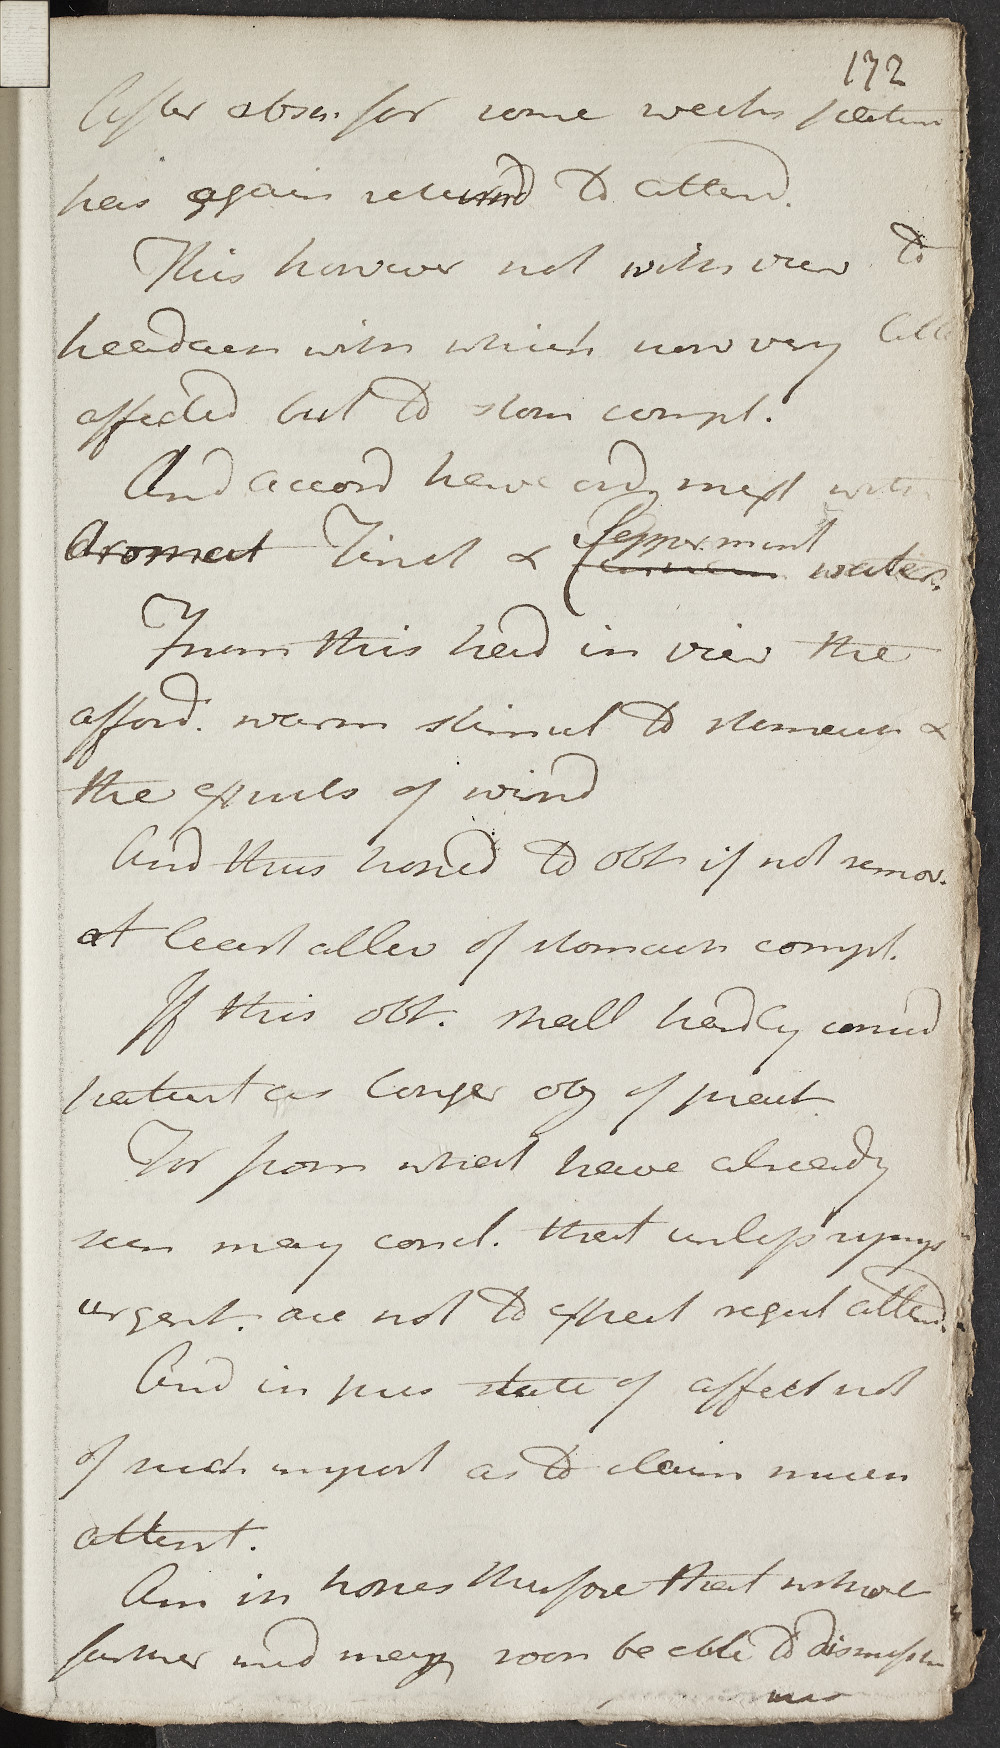 172
After absen. for some weeks patient
has again returnd to attend.
This however not with view to
headach with which now very little
affected but to stom compl.
And accord have ord mixt with
Aromat Tinct & Peppermint water.
From this had in view the
afford. warm stimul to stomach &
the expuls of wind
And thus hoped to obt if not remov.
at least allev of stomach compl.
If this obt. shall hardly consid
patient as longer obj of pract
For from what have already
seen may concl. that unless sympt
urgent. are not to expect regul attend.
And in pres state of affect not
of such import as to claim much
attent.
Am in hopes therefore that without
further med may soon be able to dismiss